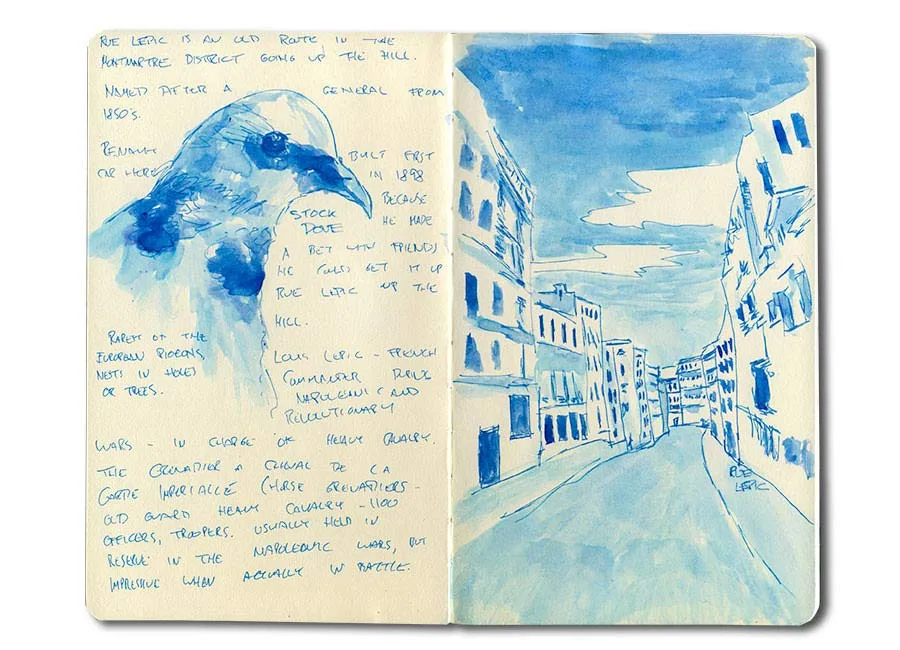 RUE LEPIC IS AN OLD ROUTE IN THE
MONTMARTRE DISTRICT GOING UP THE HILL.
NAMED AFTER A GENERAL FROM
1850'S.
RENAULT BUILT FIRST
CAR HERE IN 1898
BECAUSE
HE MADE
A BET WITH FRIENDS
HE COULD GET IT UP
RUE LEPIC UP THE
HILL.
STOCK
DOVE
RAREST OF THE
EUROPEAN PIGEONS,
NESTS IN HOLES
OR TREES.
LOUIS LEPIC - FRENCH
COMMANDER DURING
NAPOLEONIC AND
REVOLUTIONARY
WARS - IN CHARGE OF HEAVY CAVALRY.
THE GRENADIER A CHEVAL DE LA
GARDE IMPERIALLE (HORSE GRENADIERS -
OLD GUARD HEAVY CAVALRY - 1100
OFFICERS, TROOPERS. USUALLY HELD IN
RESERVE IN THE NAPOLEONIC WARS, BUT
IMPRESSIVE WHEN ACTUALLY IN BATTLE.
RUE
LEPIC